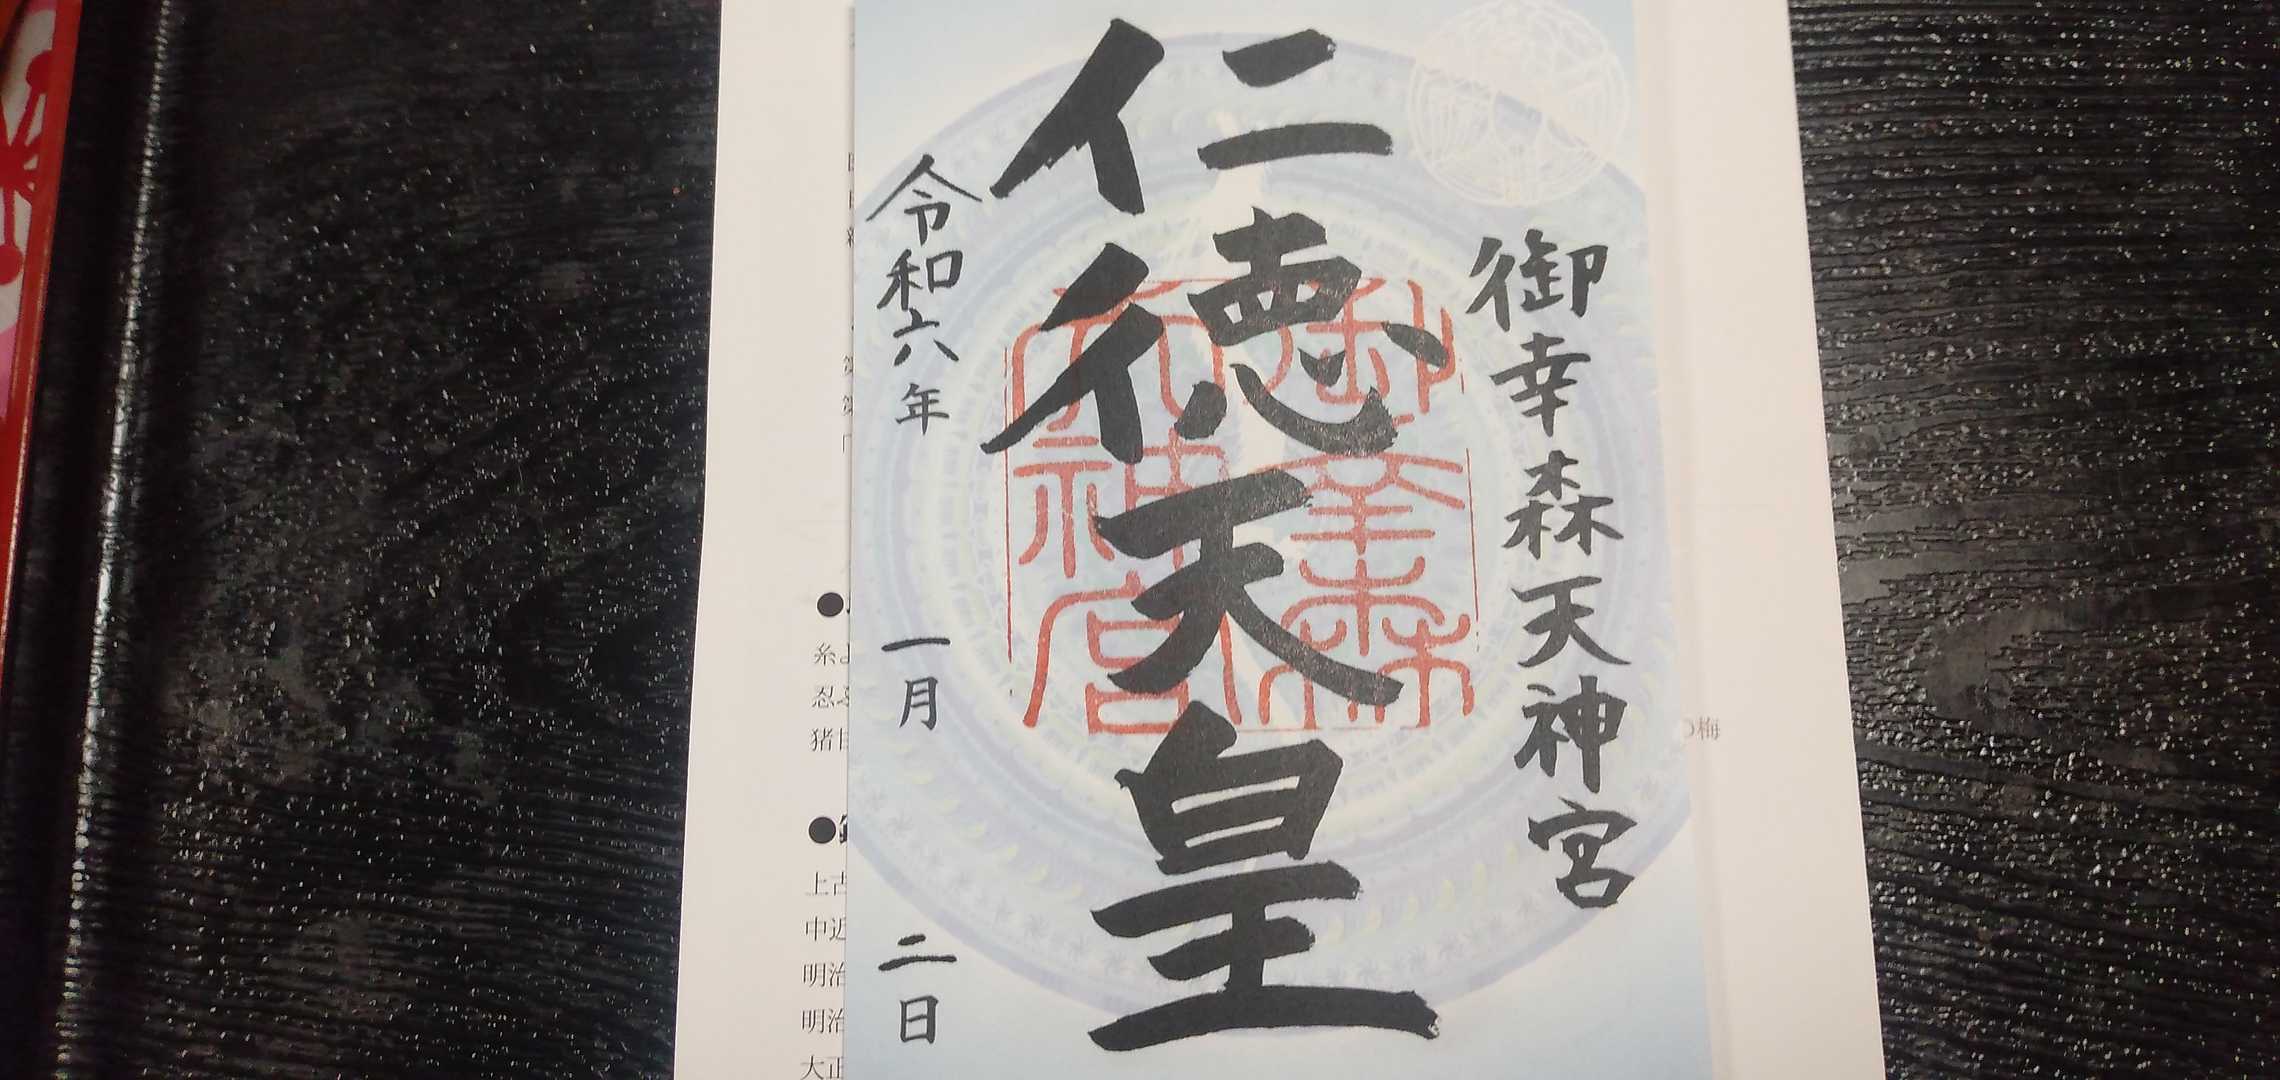 御幸森天神宮
仁徳天皇
令和六年 一月 二日
御幸森
天神宮
の梅
●
糸
忍
猪
●
上古
中近
明治
明治
大正